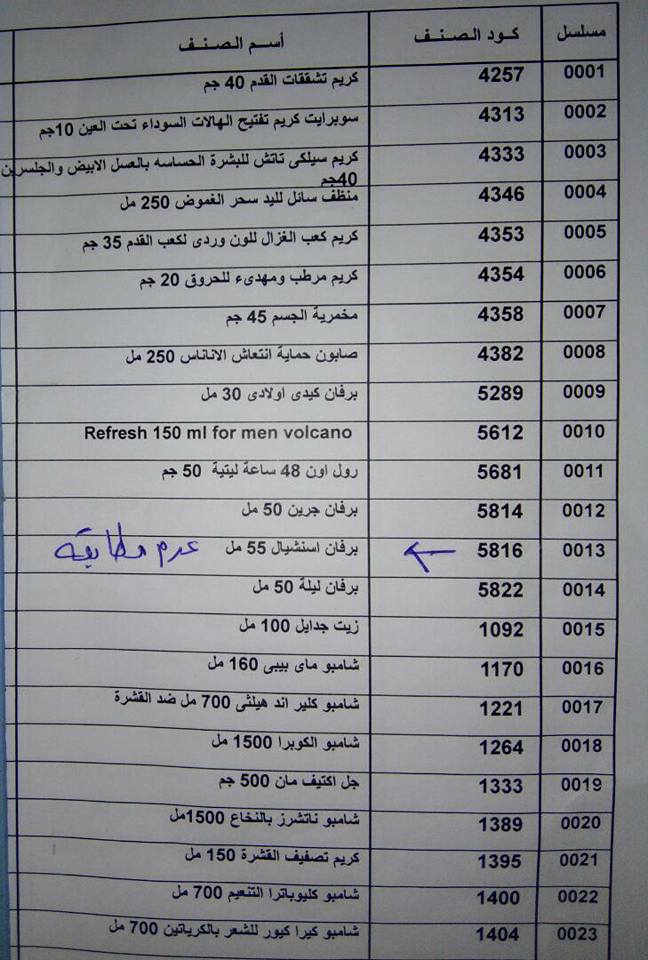 مسلسل كود الصنف أسم الصنف
0001 4257 كريم تشققات القدم 40 جم
0002 4313 سوبرايت كريم تفتيح الهالات السوداء تحت العين 10جم
0003 4333 كريم سيلكى تاتش للبشرة الحساسه بالعسل الابيض والجلسرين
40جم
0004 4346 منظف سائل لليد سحر الغموض 250 مل
0005 4353 كريم كعب الغزال للون وردى لكعب القدم 35 جم
0006 4354 كريم مرطب ومهدىء للحروق 20 جم
0007 4358 مخمرية الجسم 45 جم
0008 4382 صابون حماية انتعاش الاناناس 250 مل
0009 5289 برفان كيدى اولادى 30 مل
0010 5612 Refresh 150 ml for men volcano
0011 5681 رول اون 48 ساعة ليتية 50 جم
0012 5814 برفان جرين 50 مل
0013 5816 ← برفان اسنشيال 55 مل عدم مطابقه
0014 5822 برفان ليلة 50 مل
0015 1092 زيت جدايل 100 مل
0016 1170 شامبو ماى بيبى 160 مل
0017 1221 شامبو كلير اند هيلثى 700 مل ضد القشرة
0018 1264 شامبو الكوبرا 1500 مل
0019 1333 جل اكتيف مان 500 جم
0020 1389 شامبو ناتشرز بالنخاع 1500مل
0021 1395 كريم تصفيف القشرة 150 مل
0022 1400 شامبو كليوباترا التنعيم 700 مل
0023 1404 شامبو كيرا كيور للشعر بالكرياتين 700 مل